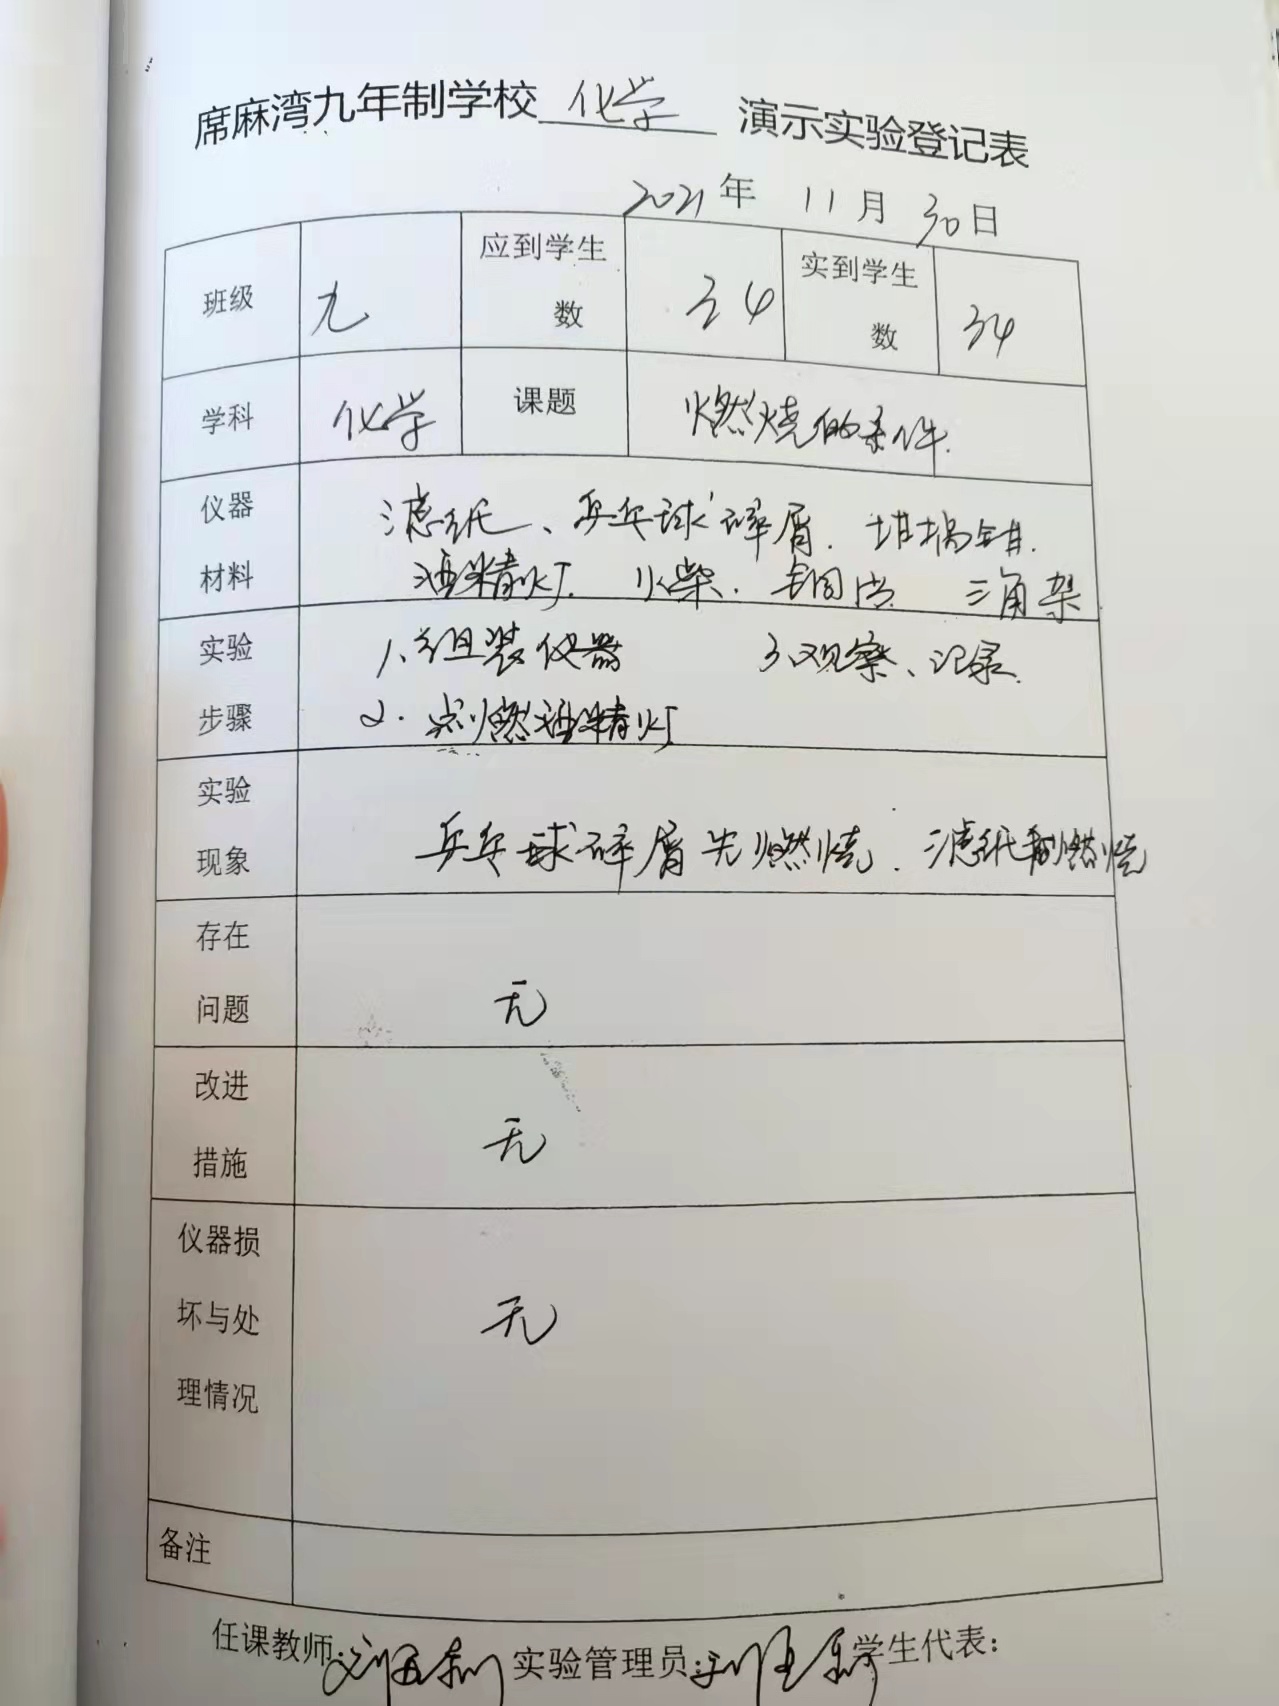 席麻湾九年制学校 化学 演示实验登记表
2021年 11月 30日
班级 九 应到学生数 34 实到学生数 34
学科 化学 课题 燃烧的条件.
仪器 滤纸、乒乓球碎屑. 坩埚钳.
材料 酒精灯. 火柴. 铜片 三角架
实验 1、组装仪器 3、观察、记录.
步骤 2. 点燃酒精灯
实验
现象 乒乓球碎屑先燃烧. 滤纸后燃烧
存在
问题 无
改进
措施 无
仪器损
坏与处 无
理情况
备注
任课教师: 实验管理员: 学生代表: